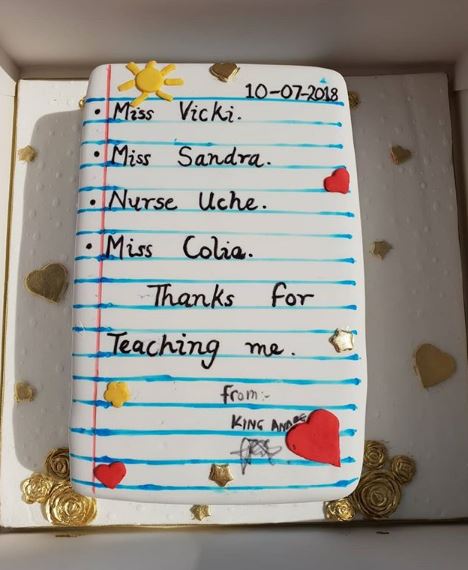 10-07-2018
• Miss Vicki.
• Miss Sandra.
• Nurse Uche.
• Miss Colia.
Thanks for
Teaching me.
from:-
KING